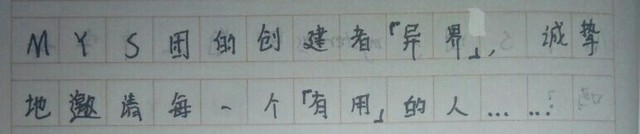 MYS团的创建者『异界』，诚挚
地邀请每一个『有用』的人……